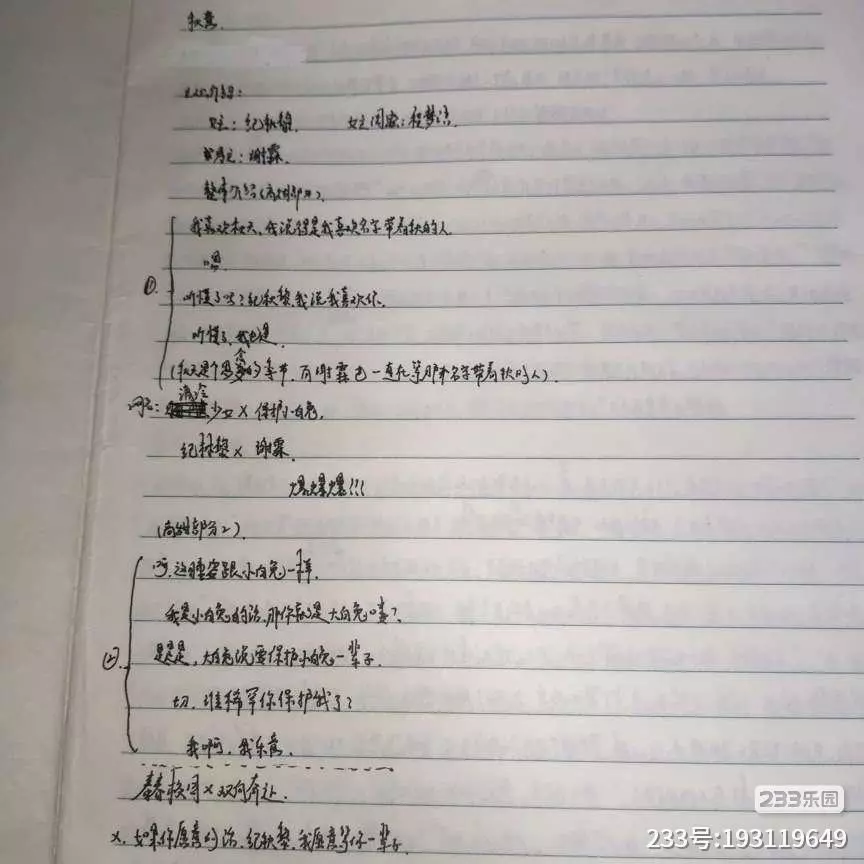 秋意
人物介绍：
女主：纪秋黎 女主闺蜜：程梦洁
男主：谢霖
整本介绍（高甜部分）
我喜欢秋天，我说得是我喜欢名字带着秋的人
嗯
①
听懂了吗？纪秋黎，我说我喜欢你
听懂了，我也是
（秋天是个思念的季节，而谢霖也一直在等那个名字带着秋的人）
清冷少女X保护小白兔
纪秋黎X谢霖
爆爆爆!!!
（高甜部分2）
啊，这睡容跟小白兔一样
我是小白兔的话，那你就是大白兔喽？
②
是是是，大白兔说要保护小白兔一辈子
切，谁稀罕你保护我了？
我啊，我乐意
青春校园X双向奔赴
X. 如果你愿意的话，纪秋黎，我愿意等你一辈子
233乐园
233号:193119649